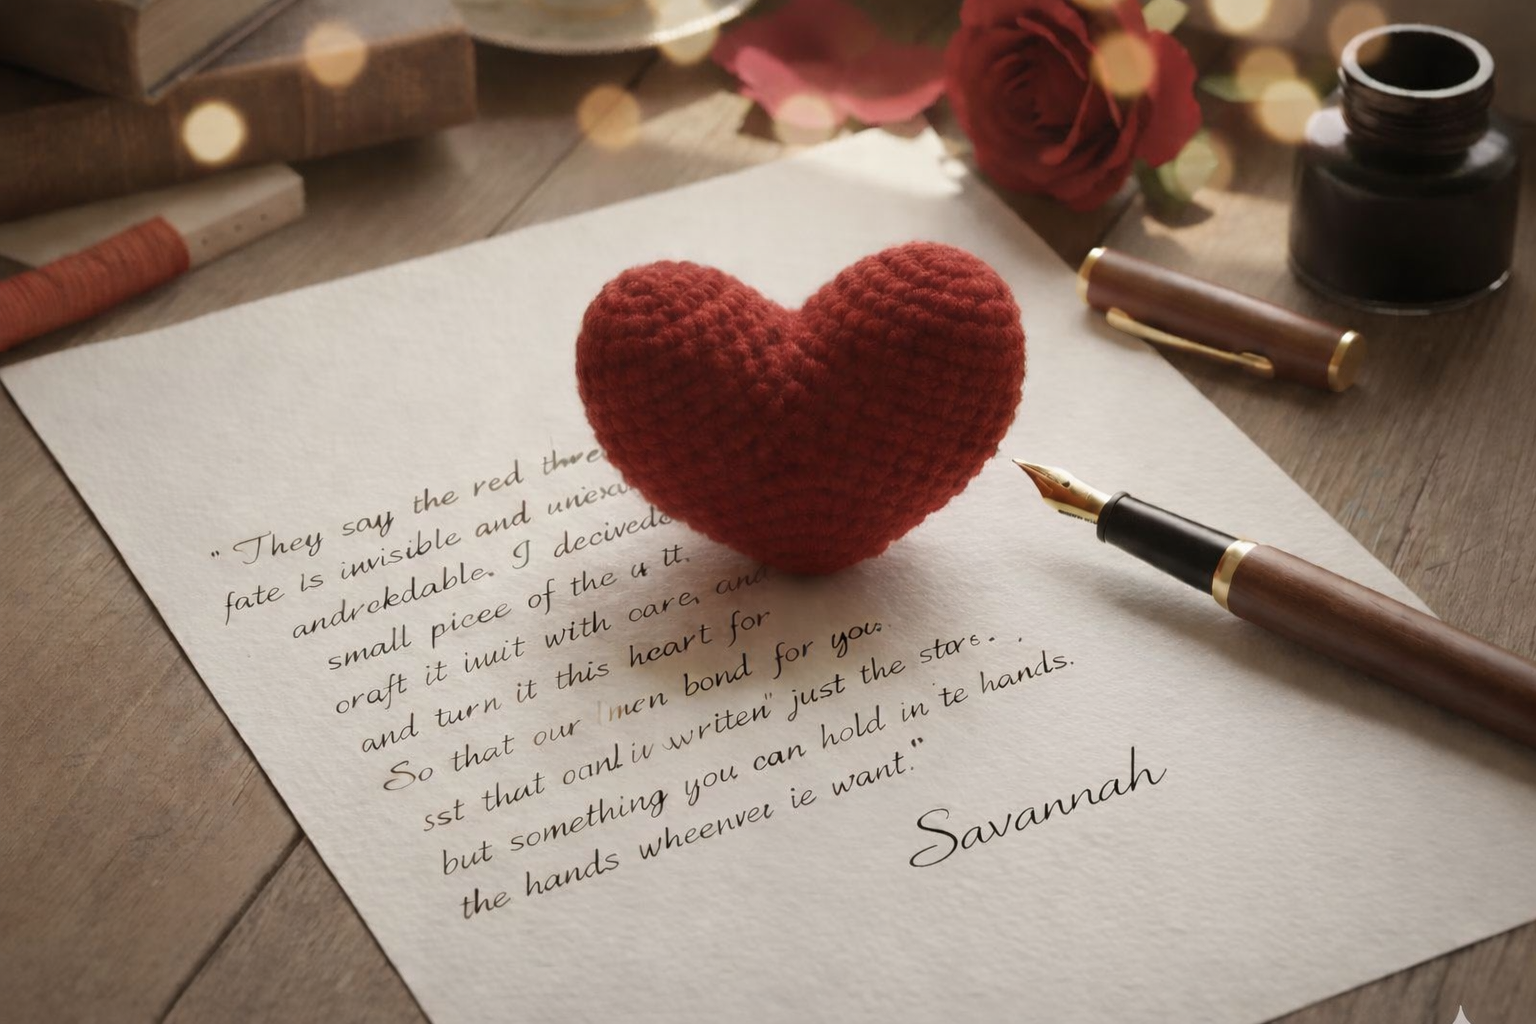 "They say the red thre
fate is invisible and unex
andrekdable. I decived
small picee of the u tt.
oraft it inuit with care, and
and turn it this heart for
So that our men bond for you.
sst that oanl iv writen" just the stors.
but something you can hold in te hands.
the hands wheenver ie want."
Savannah